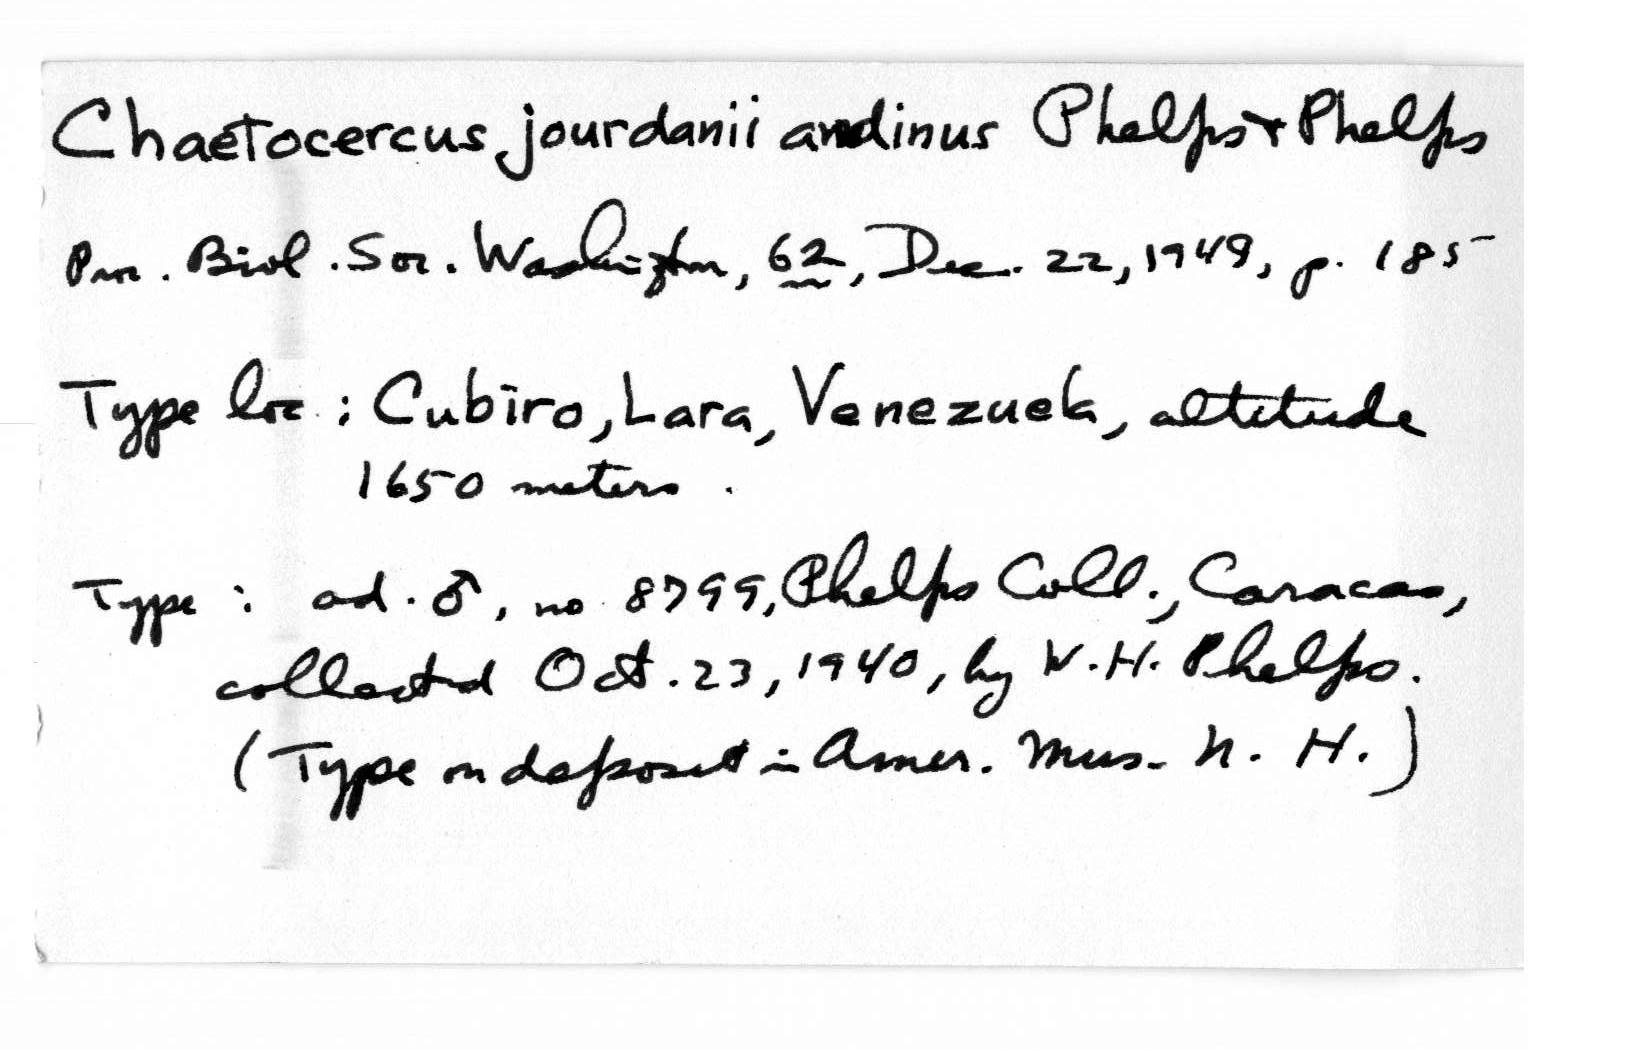 Chaetocercus jourdanii andinus Phelps & Phelps
Proc. Biol. Soc. Washington, 62, Dec. 22, 1949, p. 185
Type loc.: Cubiro, Lara, Venezuela, altitude
1650 meters.
Type: ad. ♂, no. 8799, Phelps Coll., Caracas,
collected Oct. 23, 1940, by W.H. Phelps.
(Type on deposit in Amer. Mus. N. H.)